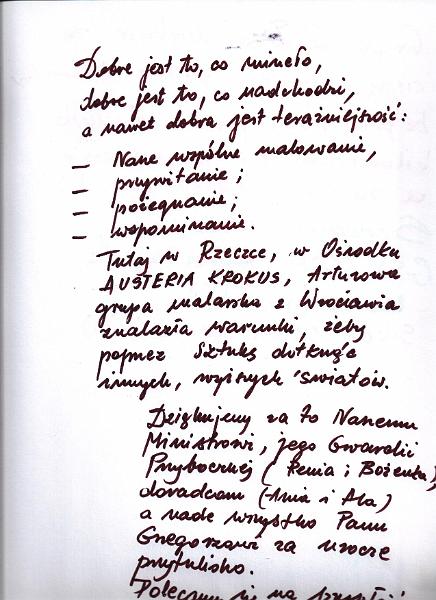 Dobre jest to, co minęło,
dobre jest to, co nadchodzi,
a nawet dobra jest teraźniejszość:
— Nasze wspólne malowanie,
— przywitanie;
— pożegnanie;
— wspominanie.
Tutaj w Rzeczce, w Ośrodku
AUSTERIA KROKUS, Arturowa
grupa malarska z Wrocławia
znalazła warunki, żeby
poprzez Sztukę dotknąć
innych, wyższych światów.
Dziękujemy za to Naszemu
Ministrowi, jego Gwardii
Przybocznej (Renia i Bożenka)
doradcom (Ania i Ala)
a nade wszystko Panu
Grzegorzowi za urocze
przytulisko.
Polecamy się na przyszłość